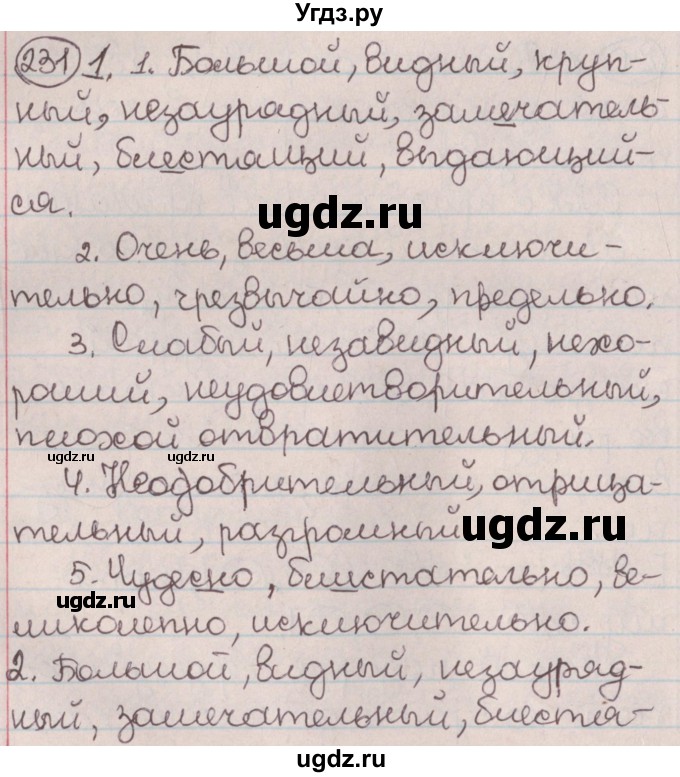 Угдз.ру
231 1. 1. Большой, видный, круп-
ный, незаурядный, замечатель-
ный, блестящий, выдающий-
ся.
ugdz.ru
2. Очень, весьма, исключи-
тельно, чрезвычайно, предельно.
3. Слабый, незавидный, нехо-
роший, неудовлетворительный,
плохой отвратительный.
ugdz.ru ugdz.ru
4. Неодобрительный, отрица-
тельный, разгромный
ugdz.ru
5. Чудесно, блистательно, ве-
ugdz.ru
ликолепно, исключительно.
2. Большой, видный, незауряд-
ный, замечательный, блестя-
ugdz.ru